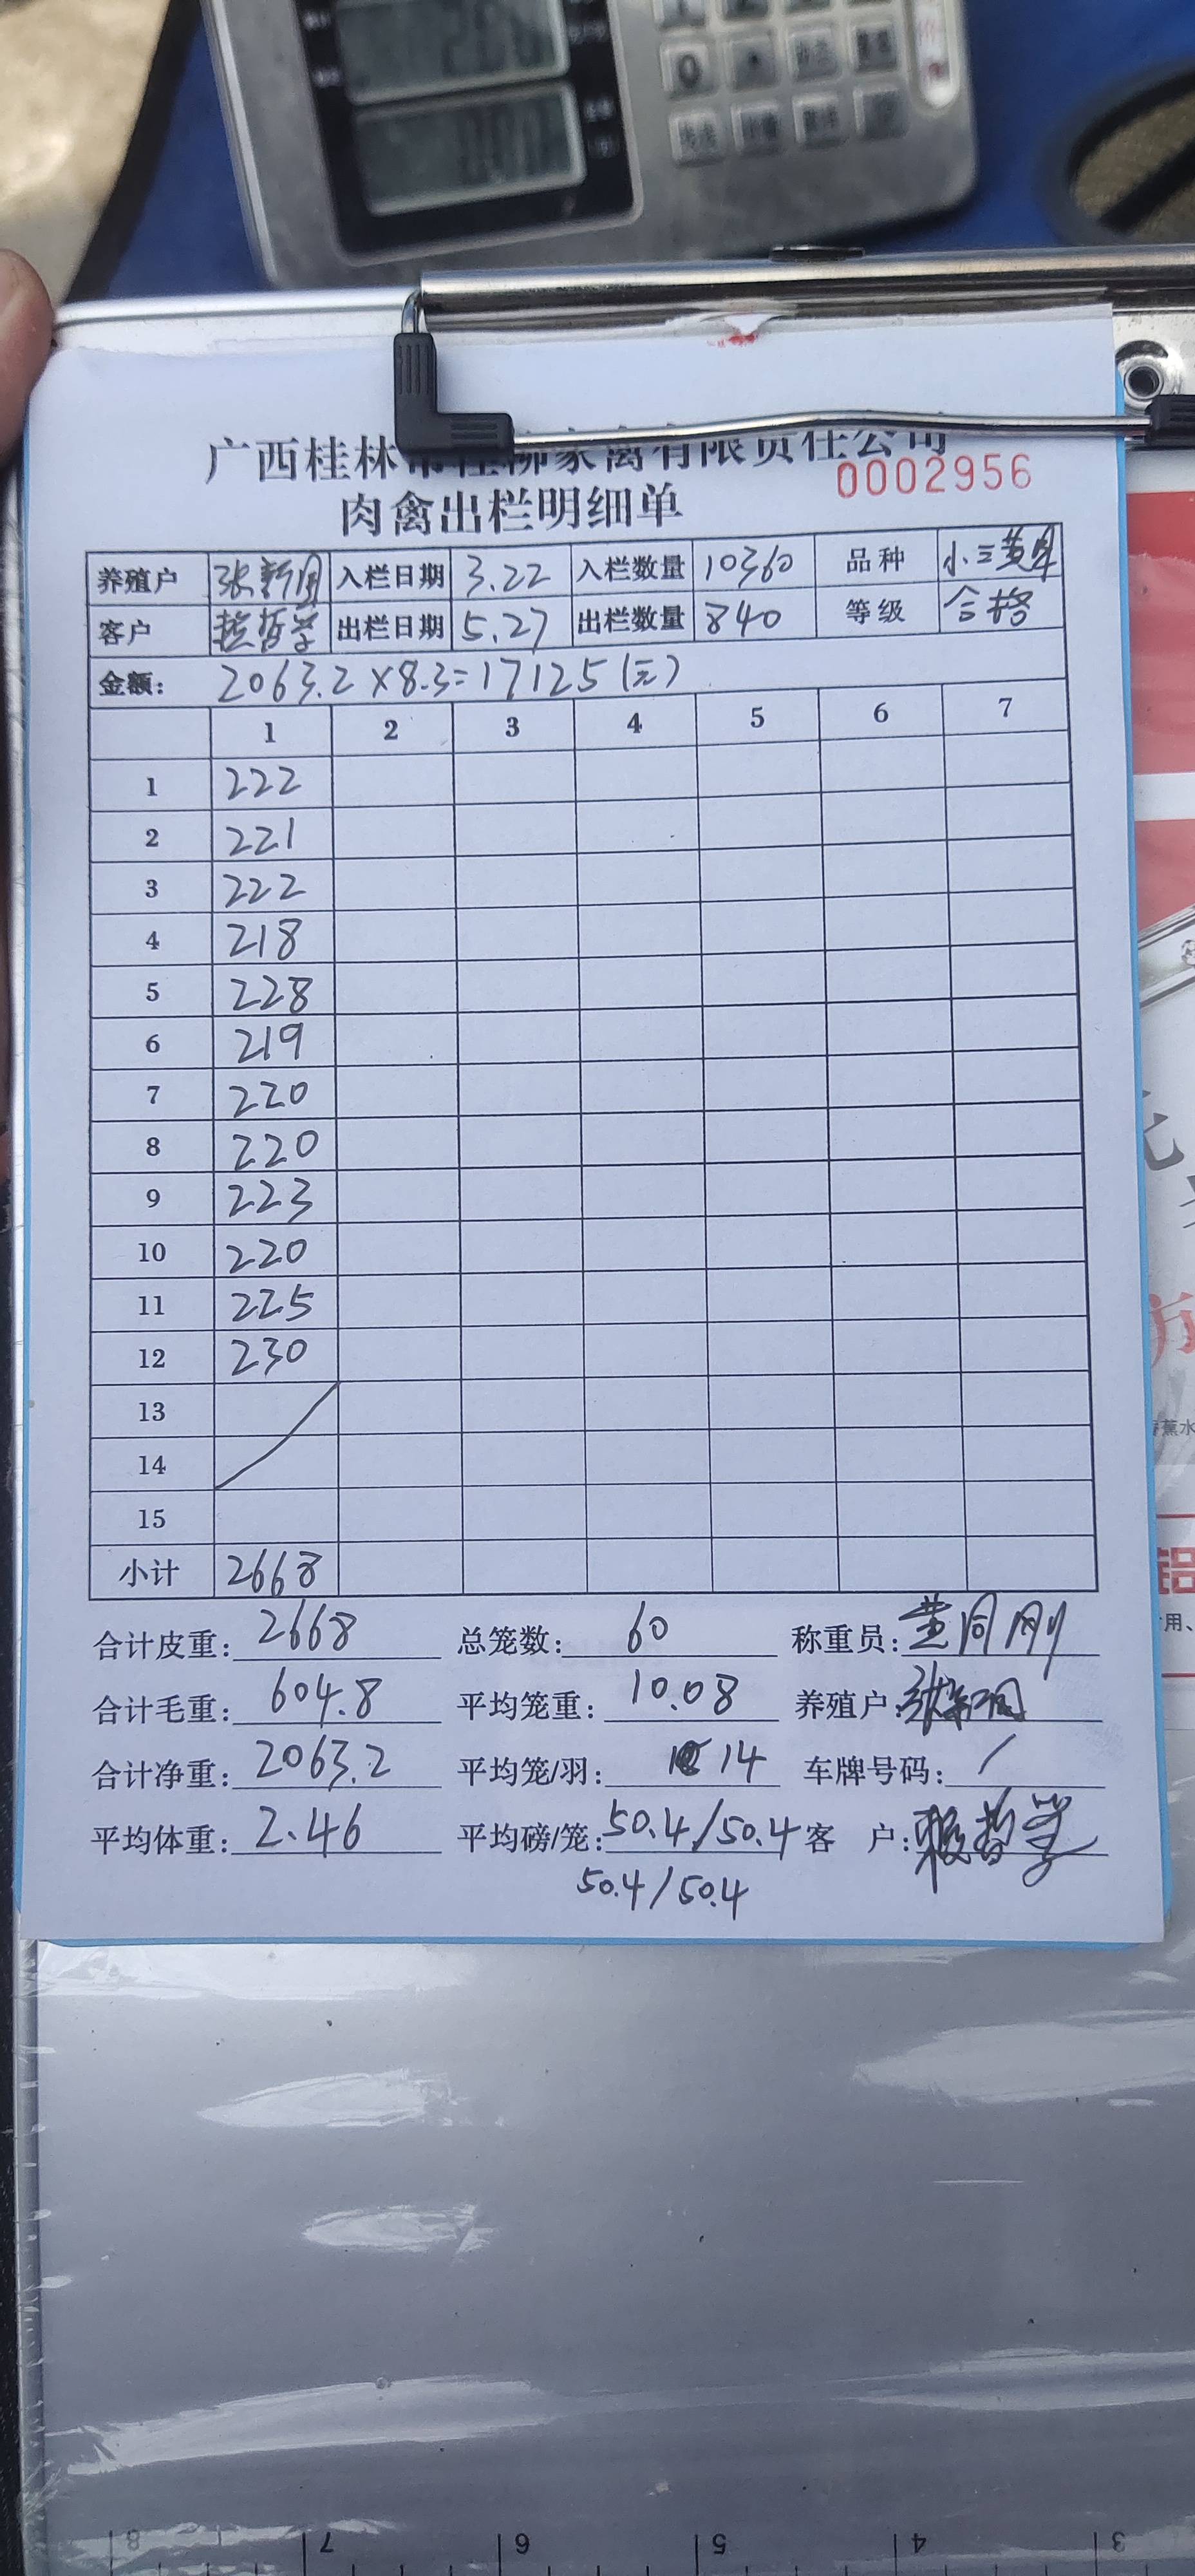 广西桂林市桂柳家禽有限责任公司
0002956
肉禽出栏明细单
养殖户 入栏日期 3.22 入栏数量 10360 品种
客户 出栏日期 5.27 出栏数量 840 等级 合格
金额: 2063.2×8.3=17125(元)
1 2 3 4 5 6 7
1 222
2 221
3 222
4 218
5 228
6 219
7 220
8 220
9 223
10 220
11 225
12 230
13
14
15
小计 2668
合计皮重: 2668 总笼数: 60 称重员:
合计毛重: 604.8 平均笼重: 10.08 养殖户:
合计净重: 2063.2 平均笼/羽: 14 车牌号码: /
平均体重: 2.46 平均磅/笼: 50.4/50.4 客 户:
50.4/50.4
香蕉水
铝
用、
8 7 6 5 4 3